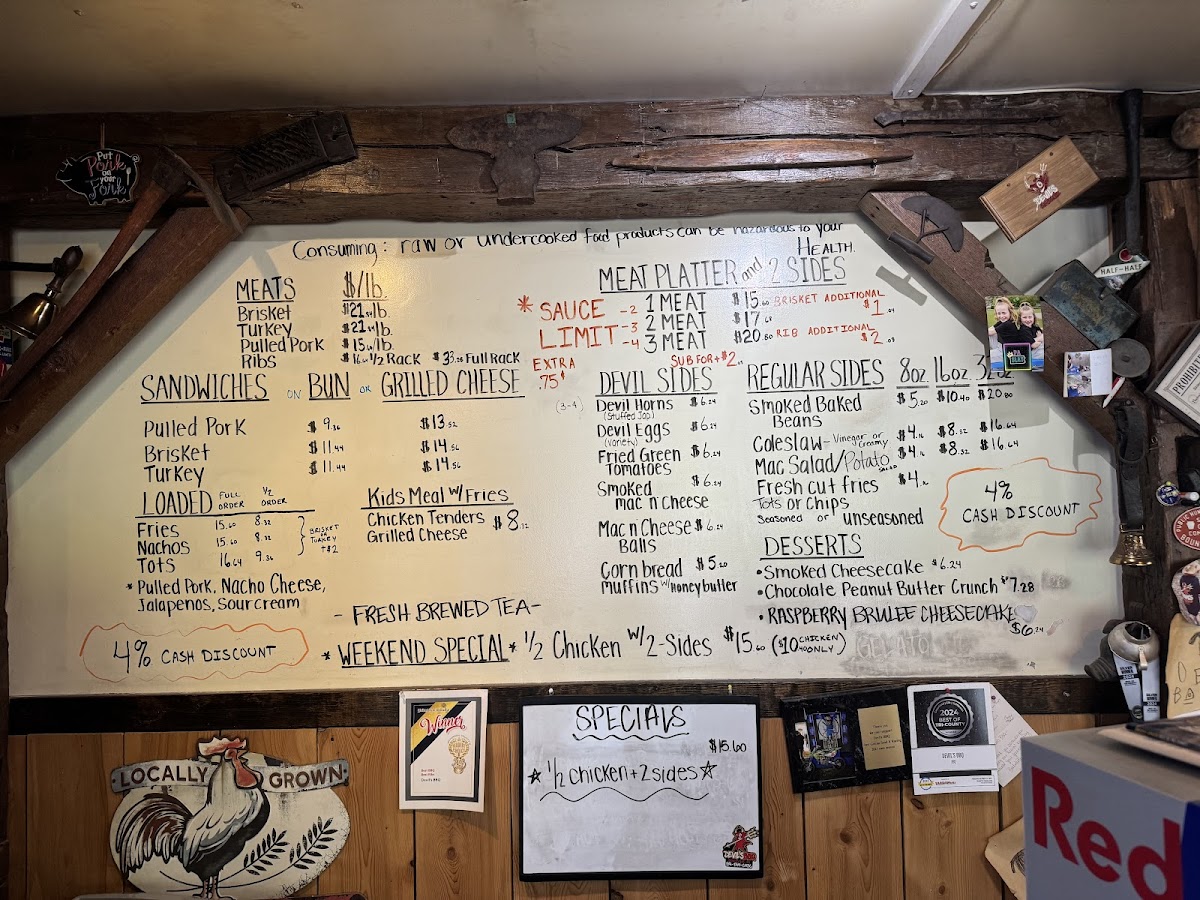 Put
Pork
on
your
Fork
Consuming: raw or undercooked food products can be hazardous to your
HEALTH.
MEATS $/lb.
Brisket $21.84/lb.
Turkey $21.84/lb.
Pulled Pork $15.60/lb.
Ribs 1/2 Rack Full Rack
MEAT PLATTER and 2 SIDES
* SAUCE -2
LIMIT -3
-4
EXTRA
.75¢
1 MEAT $15.60 BRISKET ADDITIONAL
$1.04
2 MEAT $17.68
3 MEAT $20.80 RIB ADDITIONAL
$2.08
SUB FOR +$2
SANDWICHES ON BUN OR GRILLED CHEESE
Pulled Pork $9.36 $13.52
Brisket $11.44 $14.56
Turkey $11.44 $14.56
LOADED FULL ORDER 1/2 ORDER
Fries 15.60 8.32
Nachos 15.60 8.32
Tots 16.64 9.36
BRISKET
OR
TURKEY
+$2
* Pulled Pork, Nacho Cheese,
Jalapenos, Sour cream
Kids Meal w/ Fries
Chicken Tenders $8.32
Grilled Cheese
DEVIL SIDES
(3-4) Devil Horns $6.24
(Stuffed Jap)
Devil Eggs $6.24
(Variety)
Fried Green $6.24
Tomatoes
Smoked $6.24
mac n cheese
Mac n Cheese $6.24
Balls
Corn bread $5.20
muffins w/ Honey butter
REGULAR SIDES 8oz 16oz 32oz
Smoked Baked $5.20 $10.40 $20.80
Beans
Coleslaw - Vinegar or Creamy $4.16 $8.32 $16.64
Mac Salad/Potato Salad $4.16 $8.32 $16.64
Fresh cut fries $4.16
Tots or Chips
Seasoned or unseasoned
4%
CASH DISCOUNT
DESSERTS
• Smoked Cheesecake $6.24
• Chocolate Peanut Butter Crunch $7.28
• RASPBERRY BRULEE CHEESECAKE
$6.24
GELATO
- FRESH BREWED TEA -
4% CASH DISCOUNT
* WEEKEND SPECIAL * 1/2 Chicken w/ 2-Sides $15.60 ($10.40 CHICKEN ONLY)
SPECIALS
$15.60
☆ 1/2 chicken + 2 sides ☆
LOCALLY GROWN
Winner
2024
BEST OF
TRI-COUNTY
DEVIL'S BBQ
HALF-HALF
Red